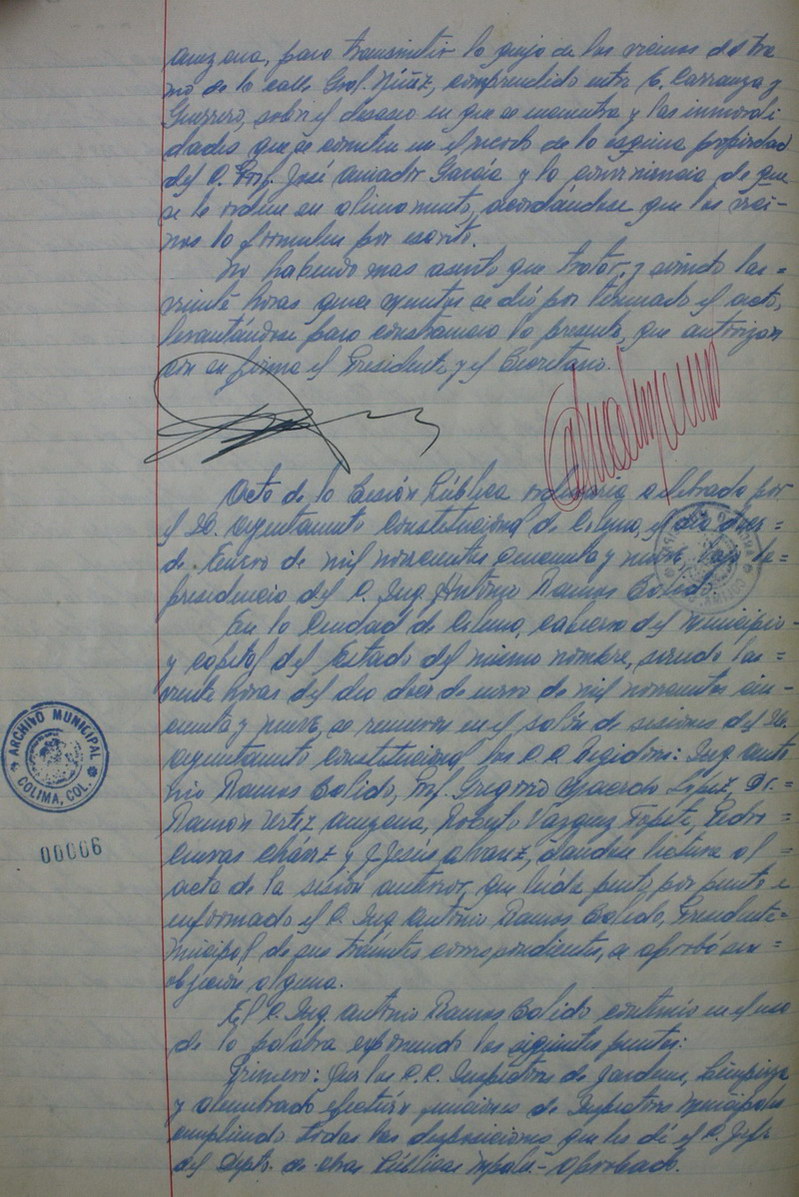 para transmitir la queja de los vecinos del tra
mo de la calle Gral. Núñez, comprendido entre V. Carranza y
Guerrero, sobre el desaseo en que se encuentra y las inmorali
dades que se cometen en el predio de la esquina propiedad
del C. Prof. José Amador García y la conveniencia de que
se le ordene su alineamiento, acordándose que los veci-
nos lo formulen por escrito.
No habiendo mas asunto que tratar, y siendo las=
veinte horas quince minutos se dió por terminado el acto,
levantándose para constancia la presente, que autorizan
con su firma el Presidente y el Secretario.
Acta de la Sesión Pública ordinaria celebrada por
el H. Ayuntamiento Constitucional de Colima, el día doce=
de Enero de mil novecientos cincuenta y nueve, bajo la=
presidencia del C. Ing. Antonio Ramos Salido.
En la Ciudad de Colima, cabecera del Municipio-
y capital del Estado del mismo nombre, siendo las=
veinte horas del día doce de enero de mil novecientos cin-
cuenta y nueve, se reunieron en el salón de sesiones del H.
Ayuntamiento Constitucional los C.C. Regidores: Ing. Anto
nio Ramos Salido, Prof. Gregorio Macedo López, Dr.=
Ramón, Roberto Vázquez Topete, Pedro=
Cuevas Chávez y J. Jesús Alvarez, dándose lectura al=
acta de la sesión anterior, que leída punto por punto e
informado el C. Ing. Antonio Ramos Salido, Presidente=
Municipal de sus trámites correspondientes, se aprobó sin=
objeción alguna.
El C. Ing. Antonio Ramos Salido continúo en el uso
de la palabra exponiendo los siguientes puntos:
Primero: Que los C.C. Inspectores de Jardines, Limpieza
y alumbrado efectúen funciones de Inspectores Municipales
cumpliendo todas las disposiciones que les dé el C. Jefe
del Depto. de Obras Públicas Mpales- Aprobado.
ARCHIVO MUNICIPAL
COLIMA, COL.
00006